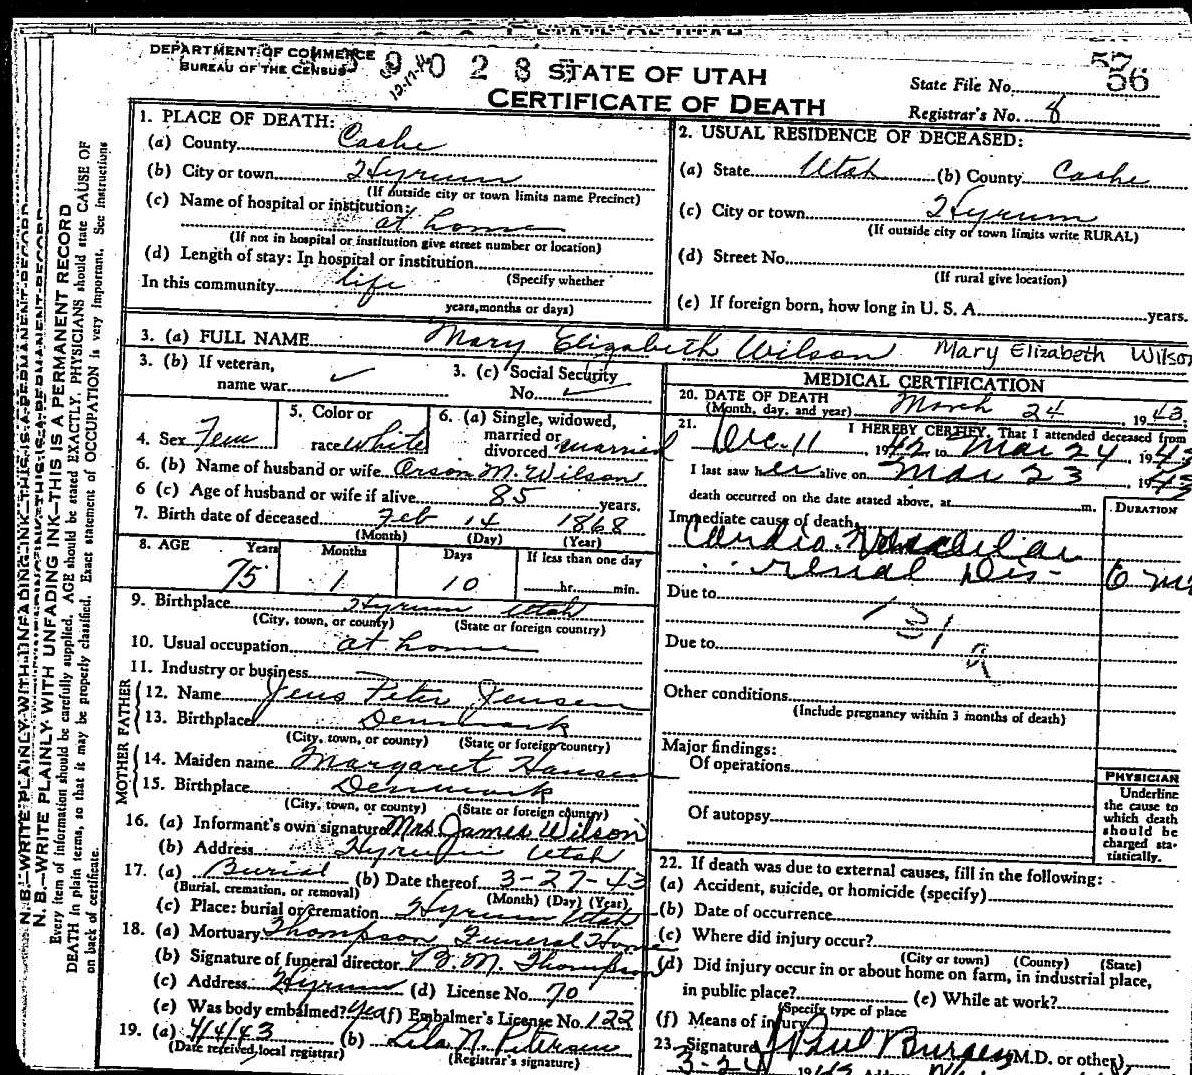 DEPARTMENT OF COMMERCE
BUREAU OF THE CENSUS
9 0 2 8
STATE OF UTAH
CERTIFICATE OF DEATH
57
State File No. 56
Registrar's No. 8
1. PLACE OF DEATH:
(a) County Cache
(b) City or town Hyrum
(If outside city or town limits name Precinct)
(c) Name of hospital or institution:
at home
(If not in hospital or institution give street number or location)
(d) Length of stay: In hospital or institution
(Specify whether
In this community life
years, months or days)
2. USUAL RESIDENCE OF DECEASED:
(a) State Utah (b) County Cache
(c) City or town Hyrum
(If outside city or town limits write RURAL)
(d) Street No.
(If rural give location)
(e) If foreign born, how long in U. S. A. years.
3. (a) FULL NAME Mary Elizabeth Wilson Mary Elizabeth Wilson
3. (b) If veteran,
name war ✓
3. (c) Social Security
No. ✓
4. Sex Fem
5. Color or
race white
6. (a) Single, widowed,
married or
divorced married
6. (b) Name of husband or wife Orson M. Wilson
6 (c) Age of husband or wife if alive 85 years.
7. Birth date of deceased Feb 14 1868
(Month) (Day) (Year)
8. AGE Years Months Days If less than one day
75 1 10 hr. min.
9. Birthplace Hyrum Utah
(City, town, or county) (State or foreign country)
10. Usual occupation at home
11. Industry or business
FATHER
12. Name Jens Peter Jensen
13. Birthplace Denmark
(City, town, or county) (State or foreign country)
MOTHER
14. Maiden name Margaret Hansen
15. Birthplace Denmark
(City, town, or county) (State or foreign country)
16. (a) Informant's own signature Mrs James Wilson
(b) Address Hyrum Utah
17. (a) Burial (b) Date thereof 3-27-43
(Burial, cremation, or removal) (Month) (Day) (Year)
(c) Place: burial or cremation Hyrum Utah
18. (a) Mortuary Thompson Funeral Home
(b) Signature of funeral director M. Thompson
(c) Address Hyrum (d) License No. 70
(e) Was body embalmed? yes (f) Embalmer's License No. 122
19. (a) 4/4/43 (b) Lila N. Petersen
(Date received local registrar) (Registrar's signature)
MEDICAL CERTIFICATION
20. DATE OF DEATH
(Month, day, and year) March 24, 1943.
21. I HEREBY CERTIFY, That I attended deceased from
Dec. 11 1942, to Mar 24, 1943
I last saw her alive on Mar 23, 1943
death occurred on the date stated above, at m.
DURATION
Immediate cause of death,
Cardio. Vascular
renal Dis- 6
Due to
131
a
Due to
Other conditions
(Include pregnancy within 3 months of death)
Major findings:
Of operations
Of autopsy
PHYSICIAN
Underline
the cause to
which death
should be
charged sta-
tistically.
22. If death was due to external causes, fill in the following:
(a) Accident, suicide, or homicide (specify)
(b) Date of occurrence
(c) Where did injury occur?
(City or town) (County) (State)
(d) Did injury occur in or about home on farm, in industrial place,
in public place? (e) While at work?
(Specify type of place
(f) Means of injury
23. Signature Paul Burgess M.D. or other)
3-24
N. B.—WRITE PLAINLY WITH UNFADING INK—THIS IS A PERMANENT RECORD
Every item of information should be carefully supplied. AGE should be stated EXACTLY. PHYSICIANS should state CAUSE OF
DEATH in plain terms, so that it may be properly classified. Exact statement of OCCUPATION is very important. See instructions
on back of certificate.